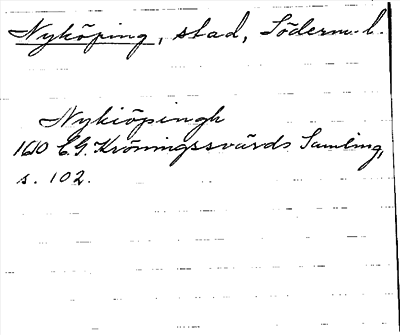 Nyköping, stad, Söderm. l.
Nykiöpingh
1610 C. G. Kröningssvärds Samling,
s. 102.